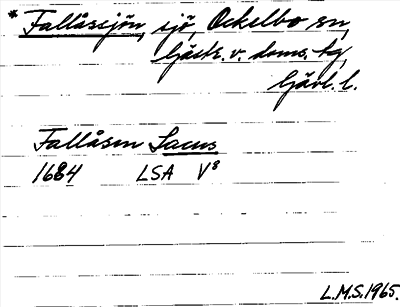 * Fallåssjön, sjö, Ockelbo sn,
Gästr. v. doms. tg
Gävl. l.
Fallåsen Lacus
1684 LSA V⁸
L.M.S. 1965.